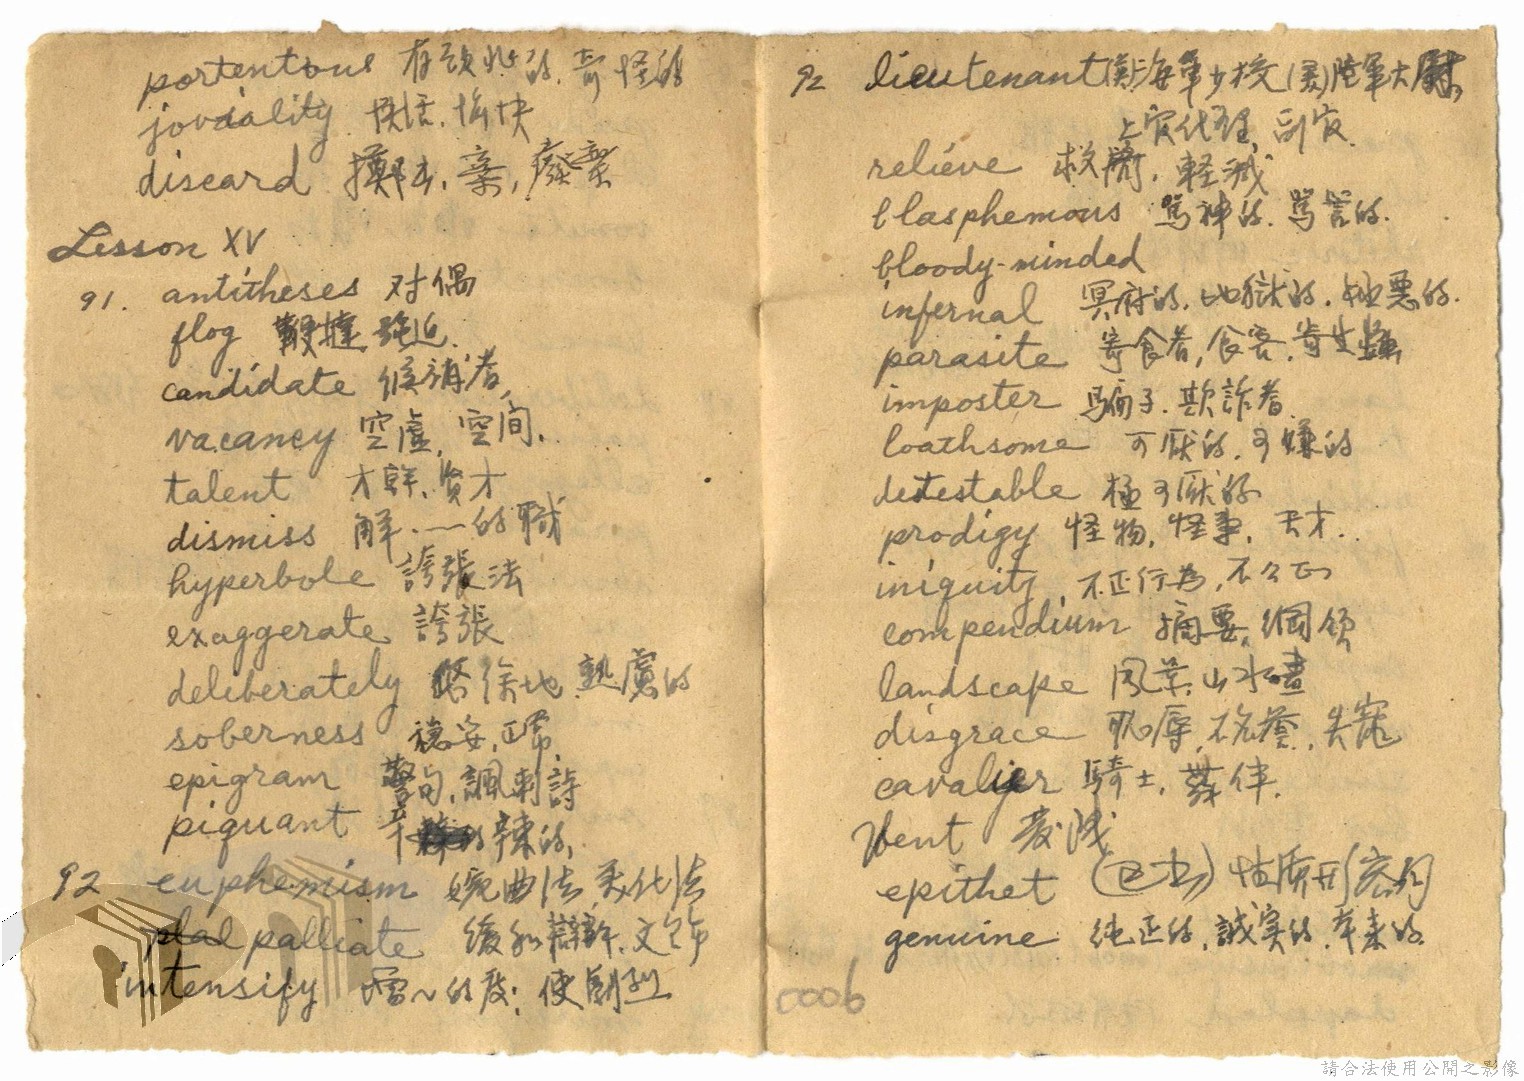 portentous 有預兆的、奇怪的
joviality 快活、愉快
discard 擲去、棄, 廢棄
Lesson XV
91. antitheses 对偶
flog 鞭撻 強迫
candidate 候補者,
vacancy 空虛, 空间.
talent 才幹、賢才
dismiss 解、〜的職
hyperbole 誇張法
exaggerate 誇張
deliberately 徐徐地 熟慮的
soberness 穩妥, 正常,
epigram 警句, 諷刺詩
piquant 辛辣的,
92 euphemism 婉曲法, 柔化法
palliate 緩和 辯解、文飾
intensify 增〜的度; 使劇烈
92 lieutenant (美)海軍少校 (美)陸軍大尉,
上官代理, 副官.
relieve 救濟, 軽減
blasphemous 罵神的. 罵詈的.
bloody-minded
infernal 冥府的, 地獄的, 極悪的.
parasite 寄食者, 食客, 寄生蟲
imposter 騙子. 欺詐者.
loathsome 可厭的, 可嫌的
detestable 極可厭的
prodigy 怪物, 怪事, 天才..
iniquity, 不正行為, 不公正
compendium 摘要, 綱領
landscape 風景, 山水畫
disgrace 恥辱, 不名誉, 失寵
cavalier 騎士,
Vent 發洩
epithet 性质形容詞
genuine 纯正的, 誠実的, 本来的.
0006
請合法使用公開之影像